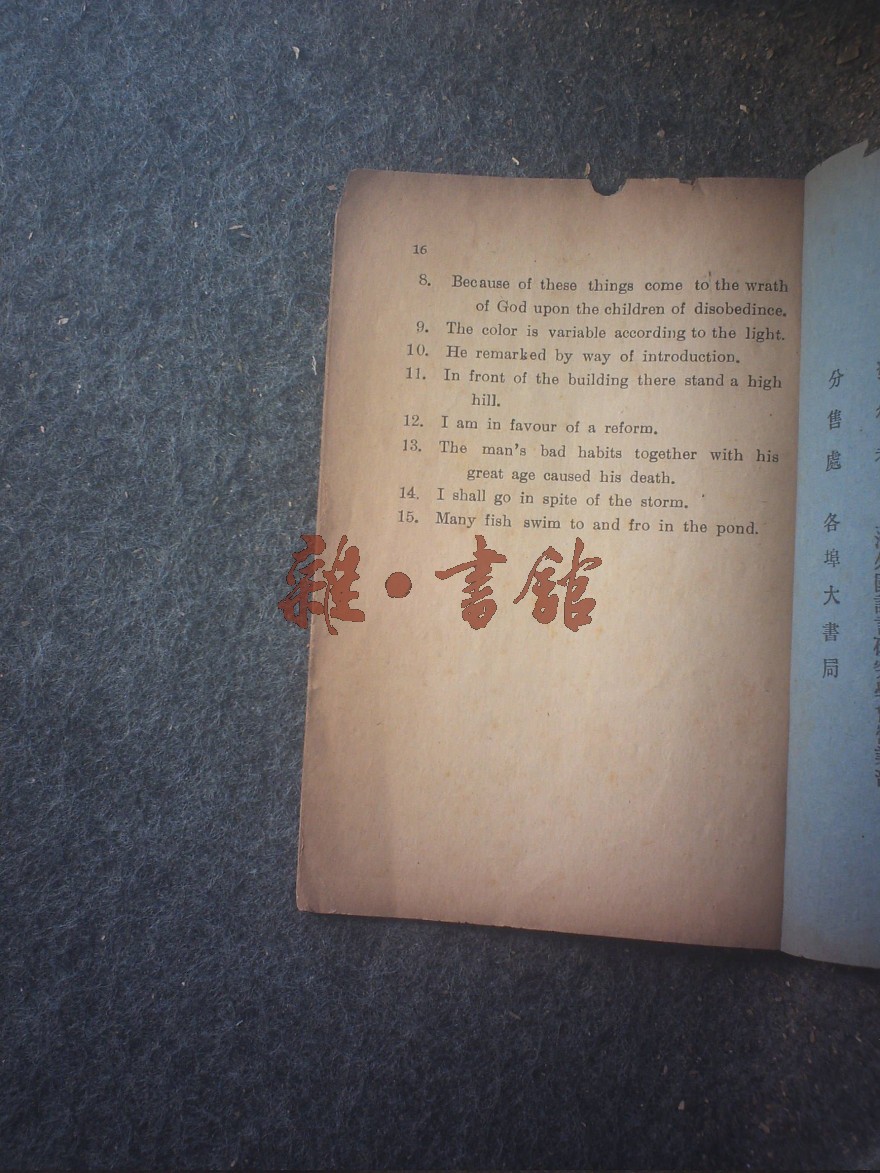 16
8. Because of these things come to the wrath
of God upon the children of disobedince.
9. The color is variable according to the light.
10. He remarked by way of introduction.
11. In front of the building there stand a high
hill.
12. I am in favour of a reform.
13. The man's bad habits together with his
great age caused his death.
14. I shall go in spite of the storm.
15. Many fish swim to and fro in the pond.
雜·書館
分售處 各埠大書局